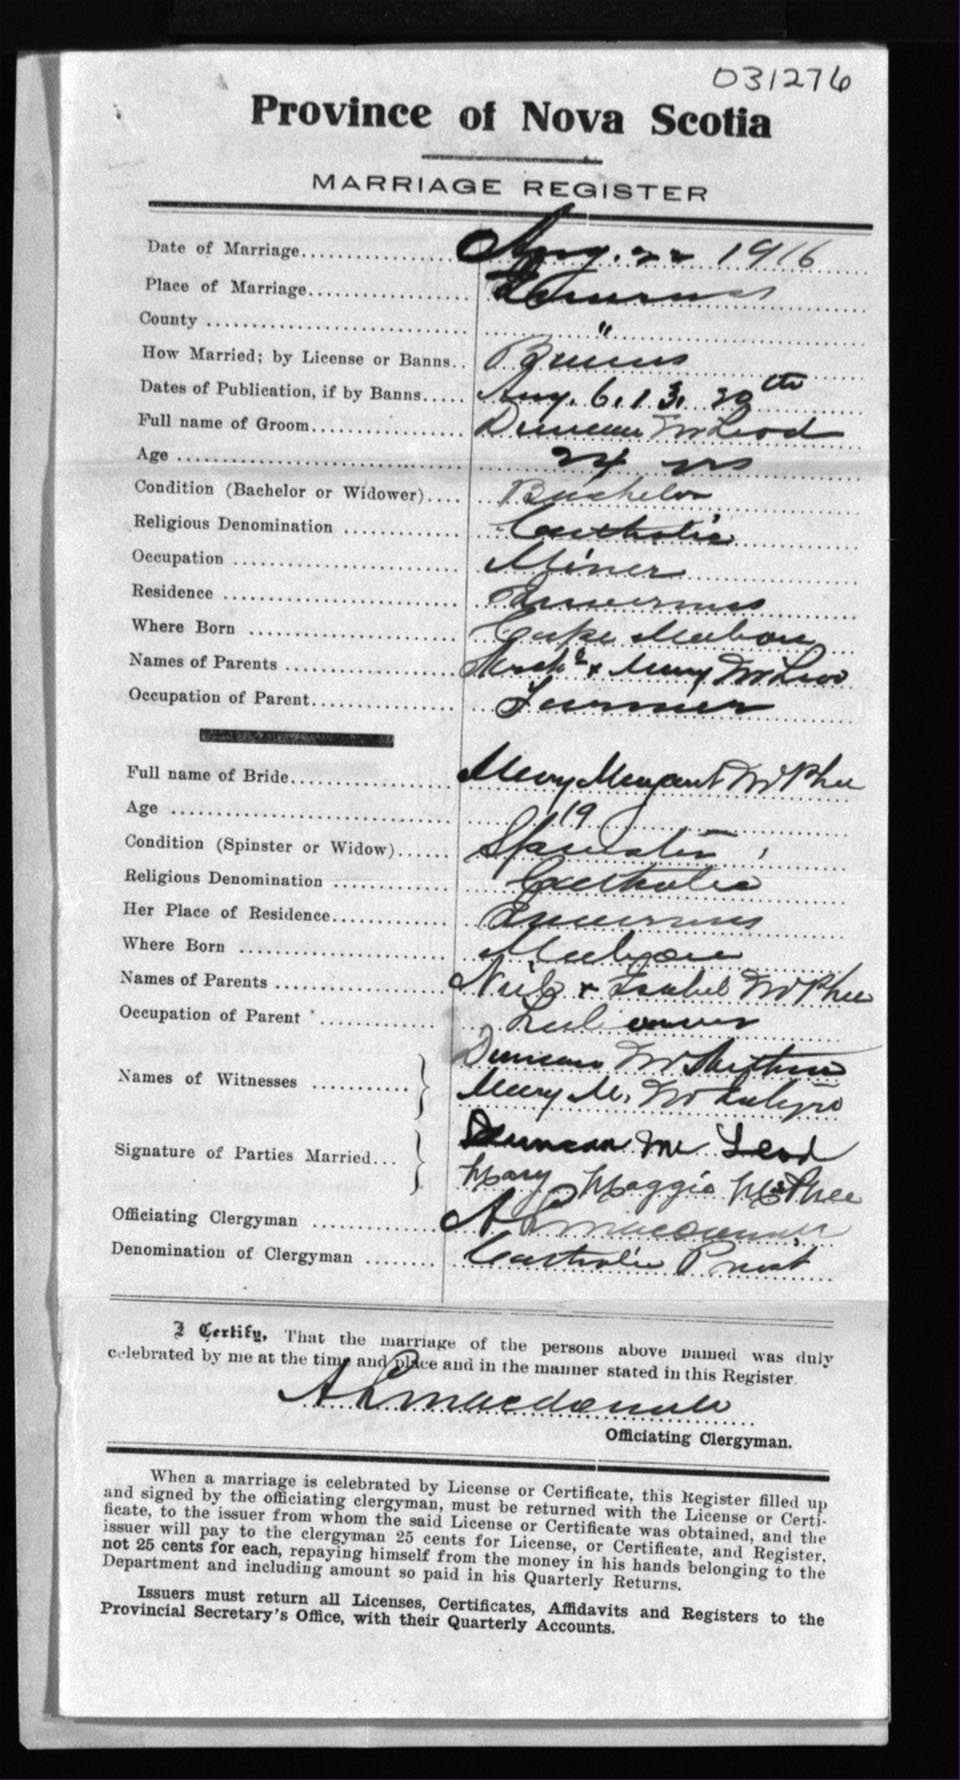 031276
Province of Nova Scotia
MARRIAGE REGISTER
Date of Marriage Aug. 22 1916
Place of Marriage Inverness
County "
How Married; by License or Banns Banns
Dates of Publication, if by Banns Aug. 6. 13. 20th
Full name of Groom Duncan McLeod
Age 24 yrs
Condition (Bachelor or Widower) Bachelor
Religious Denomination Catholic
Occupation Miner
Residence Inverness
Where Born Cape Mabou
Names of Parents & Mary McLeod
Occupation of Parent Farmer
Full name of Bride Mary Margaret McPhee
Age 19
Condition (Spinster or Widow) Spinster
Religious Denomination Catholic
Her Place of Residence Inverness
Where Born Mabou
Names of Parents Neil & Isabel McPhee
Occupation of Parent
Names of Witnesses Duncan McArthur
Mary M.
Signature of Parties Married Duncan Mc Leod
Mary Maggie McPhee
Officiating Clergyman A L Macdonald
Denomination of Clergyman Catholic Priest
I Certify, That the marriage of the persons above named was duly
celebrated by me at the time and place and in the manner stated in this Register.
A L Macdonald
Officiating Clergyman.
When a marriage is celebrated by License or Certificate, this Register filled up
and signed by the officiating clergyman, must be returned with the License or Certi-
ficate, to the issuer from whom the said License or Certificate was obtained, and the
issuer will pay to the clergyman 25 cents for License, or Certificate, and Register,
not 25 cents for each, repaying himself from the money in his hands belonging to the
Department and including amount so paid in his Quarterly Returns.
Issuers must return all Licenses, Certificates, Affidavits and Registers to the
Provincial Secretary's Office, with their Quarterly Accounts.